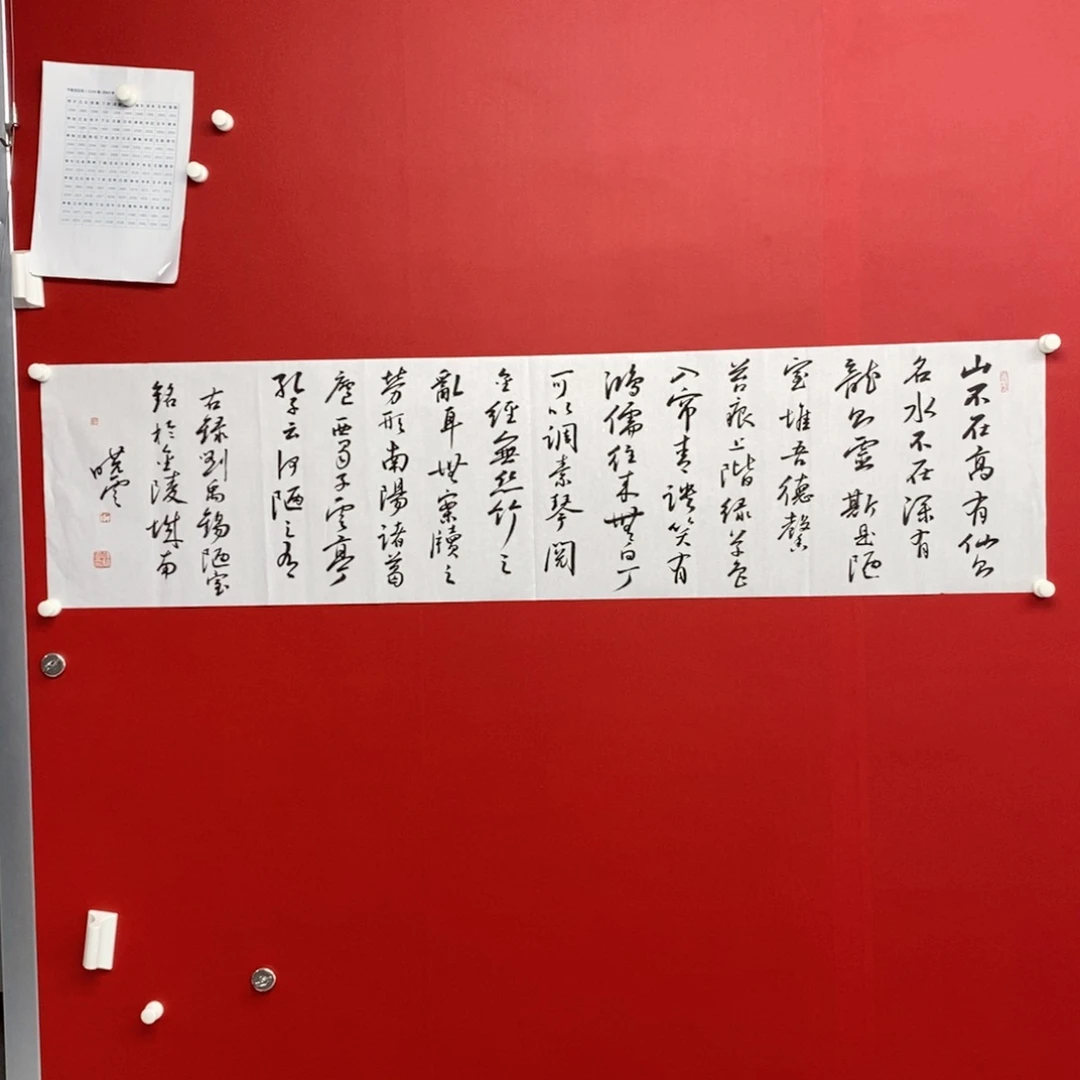 山不在高有仙则
名水不在深有
龍则靈斯是陋
室惟吾德馨
苔痕上階緑草色
入帘青談笑有
鴻儒往来無白丁
可以調素琴閲
金經無絲竹之
亂耳無案牘之
勞形南陽諸葛
廬西蜀子雲亭
孔子云何陋之有
右録劉禹錫陋室
銘於金陵城南
曉雲